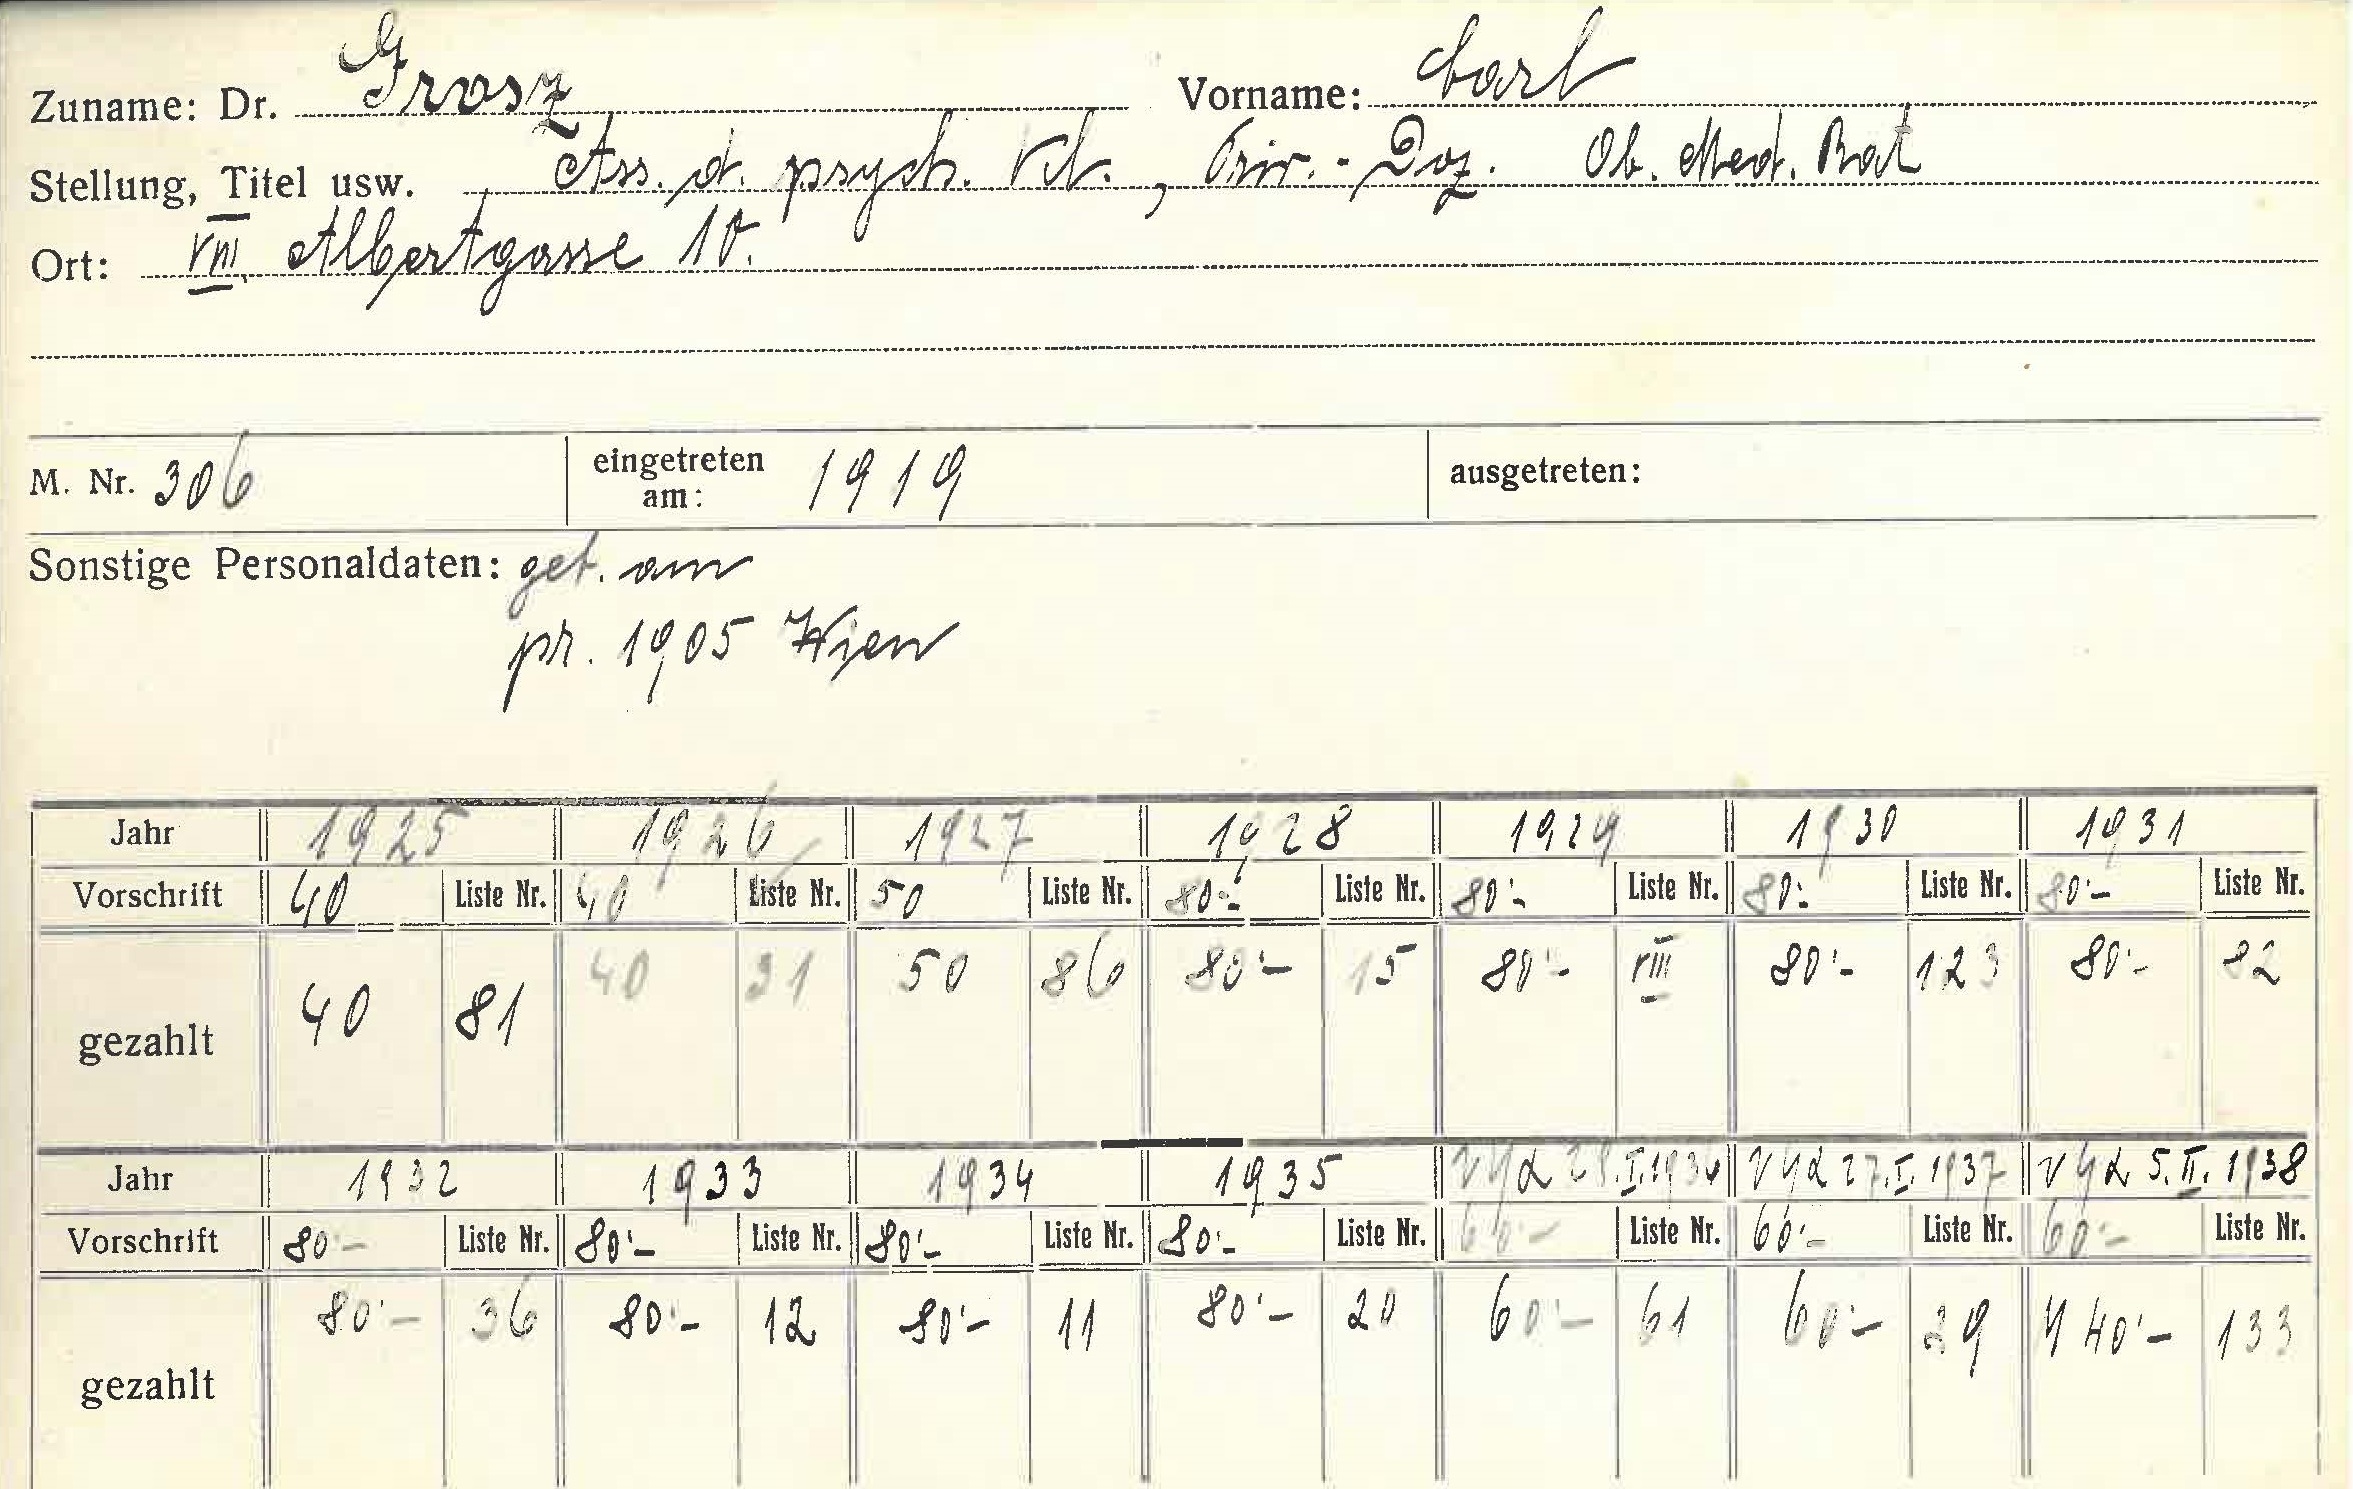 Zuname: Dr. Grosz Vorname: Carl
Stellung, Titel usw. Ass. d. psych. Kl., Priv.-Doz. Ob. Med. Rat
Ort: VIII. Albertgasse 10.
M. Nr. 306 eingetreten am: 1919 ausgetreten:
Sonstige Personaldaten: geb. am
pr. 1905 Wien
Jahr 1925 1926 1927 1928 1929 1930 1931
Vorschrift 40 Liste Nr. 40 Liste Nr. 50 Liste Nr. 80·- Liste Nr. 80·- Liste Nr. 80·- Liste Nr. 80·- Liste Nr.
gezahlt 40 81 40 31 50 86 80·- 15 80·- VIII 80·- 123 80·- 82
Jahr 1932 1933 1934 1935 28.I.1936 27.I.1937 5.II.1938
Vorschrift 80·- Liste Nr. 80·- Liste Nr. 80·- Liste Nr. 80·- Liste Nr. 60·- Liste Nr. 60·- Liste Nr. 60·- Liste Nr.
gezahlt 80·- 36 80·- 12 80·- 11 80·- 20 60·- 61 60·- 39 40·- 133